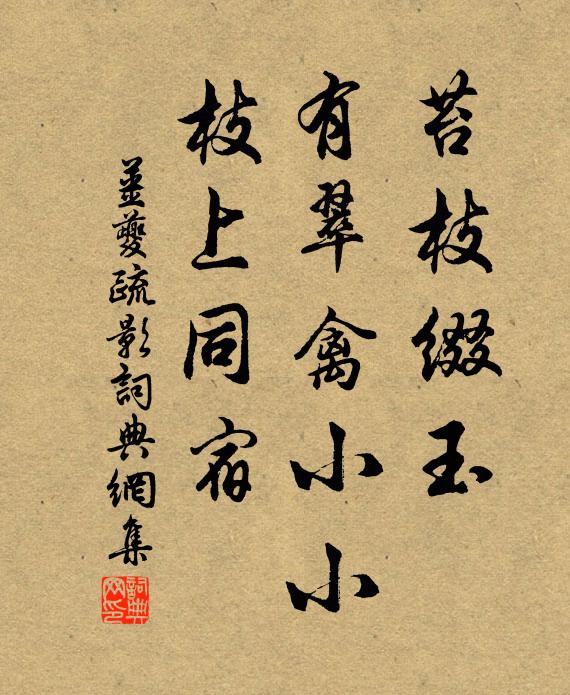 苔枝綴玉
有翠禽小小
枝上同宿
姜夔疏影詞典網集
詞典网印